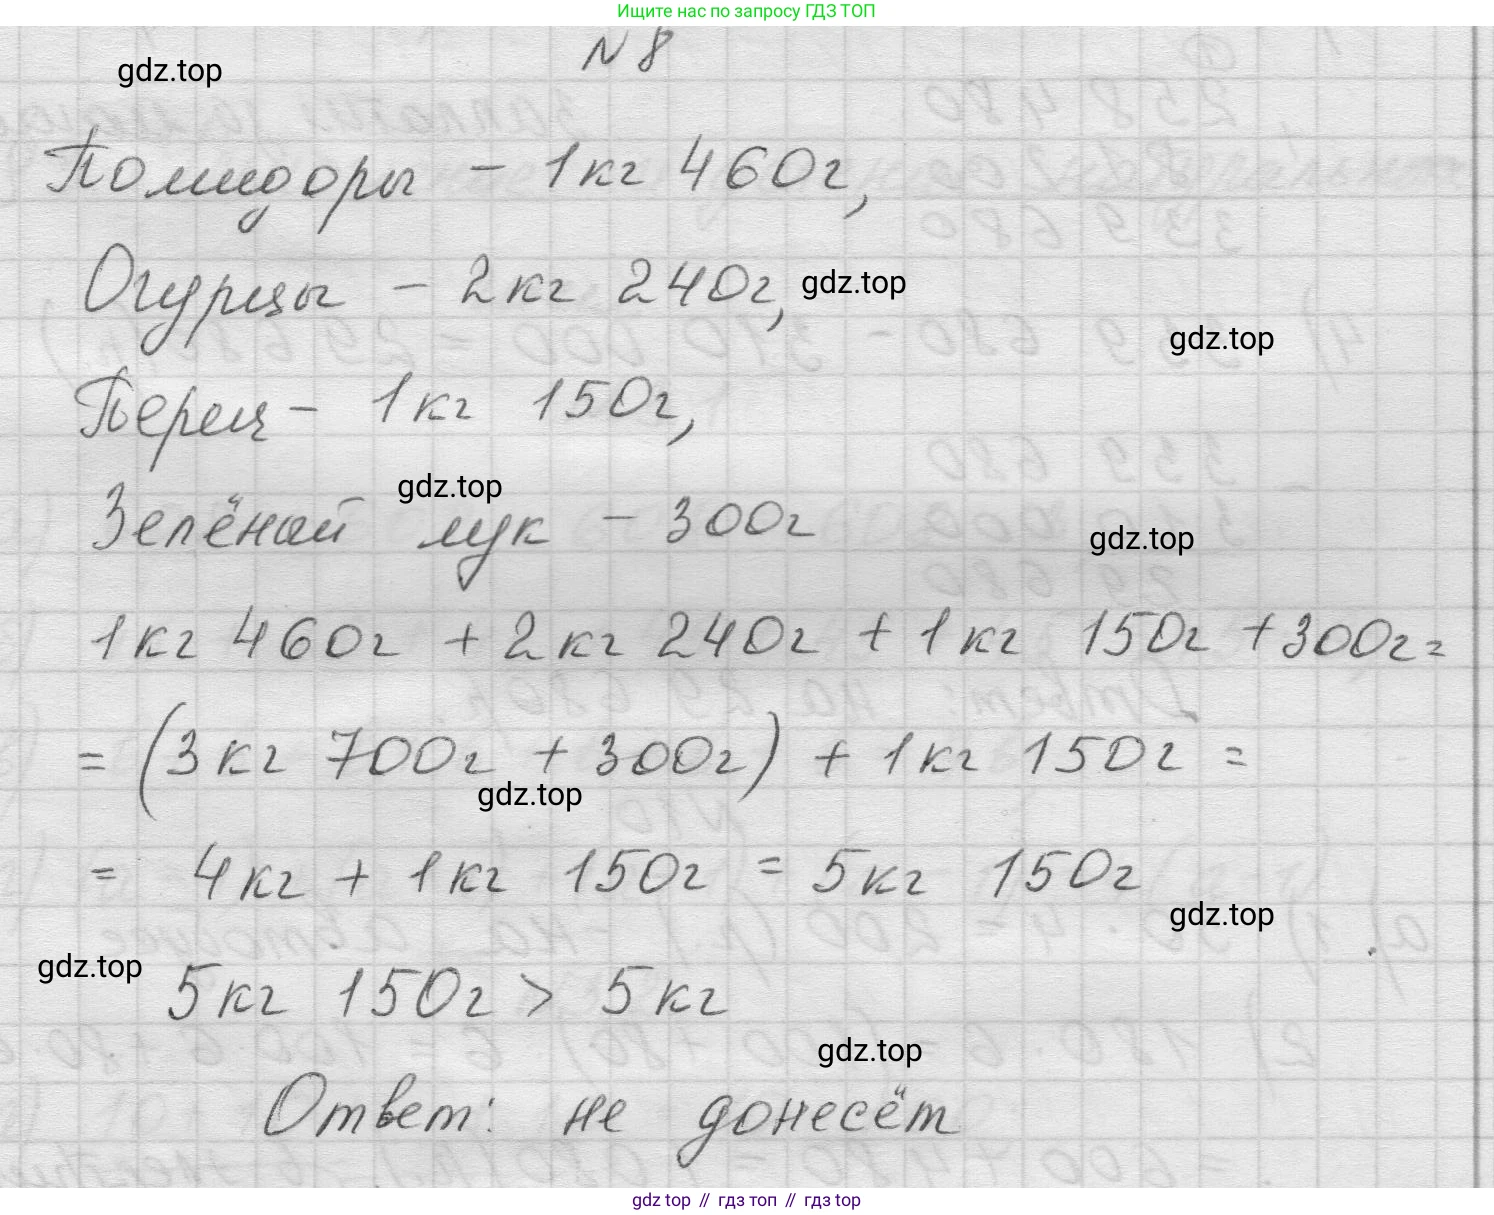 Ищите нас по запросу ГДЗ ТОП
N 8
gdz.top
Помидоры - 1кг 460г,
Огурцы - 2кг 240г,
gdz.top
gdz.top
Перец - 1кг 150г,
gdz.top
Зелёный лук - 300г
gdz.top
1кг 460г + 2кг 240г + 1кг 150г + 300г =
= (3кг 700г + 300г) + 1кг 150г =
gdz.top
= 4кг + 1кг 150г = 5кг 150г
gdz.top
gdz.top
5кг 150г > 5кг
gdz.top
Ответ: не донесёт
gdz top // гдз топ // гдз top